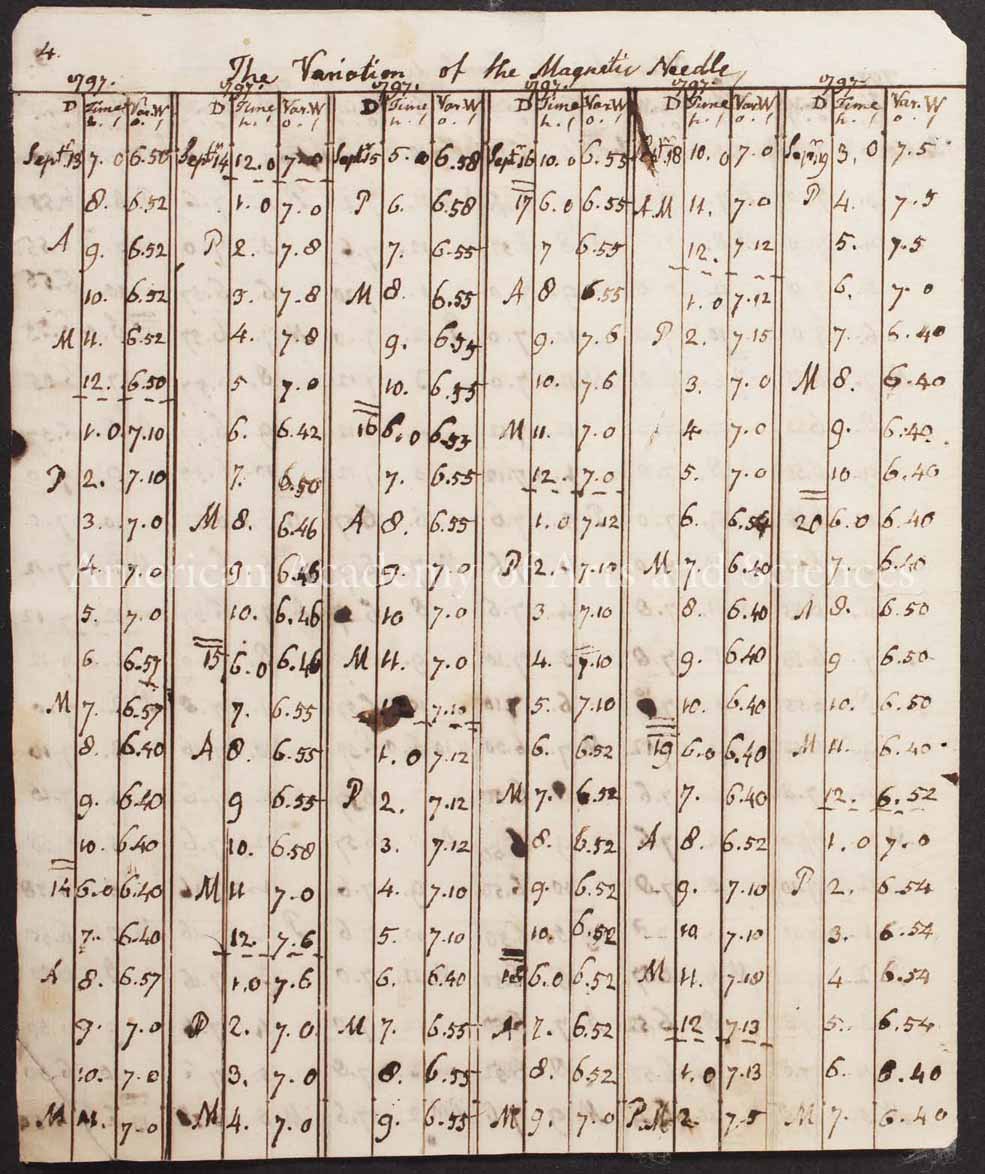 4.
The Variation of the Magnetic Needle
1797. 1797. 1797. 1797. 1797. 1797.
D Time Var.W D Time Var.W D Time Var.W D Time Var.W D Time Var.W D Time Var.W
h. ' o. ' h. ' o. ' h. ' o. ' h. ' o. ' h. ' o. ' h. ' o. '
Septr 13 7.0 6.50 Septr 14 12.0 7.0 Septr 15 5.0 6.58 Septr 16 10.0 6.55 18 10.0 7.0 Septr 19 3.0 7.5
8. 6.52 1.0 7.0 P 6. 6.58 17 6.0 6.55 A.M 11. 7.0 P 4. 7.5
A 9. 6.52 P 2. 7.8 7. 6.55 7 6.55 12. 7.12 5. 7.5
10. 6.52 3. 7.8 M 8. 6.55 A 8 6.55 1.0 7.12 6. 7.0
M 11. 6.52 4. 7.8 9. 6.55 9. 7.6 P 2. 7.15 7. 6.40
12. 6.50 5 7.0 10. 6.55 10. 7.6 3. 7.0 M 8. 6.40
1.0 7.10 6. 6.42 16 6.0 6.53 M 11. 7.0 4. 7.0 9. 6.40
P 2. 7.10 7. 6.50 7. 6.55 12. 7.0 5. 7.0 10. 6.40
3. 7.0 M 8. 6.46 A 8. 6.55 1.0 7.12 6. 6.54 20 6.0 6.40
4. 7.0 9. 6.46 9. 7.0 P 2. 7.10 M 7. 6.40 7. 6.40
American Academy of Arts and Sciences
5. 7.0 10. 6.46 10 7.0 3. 7.10 8. 6.40 A 8. 6.50
6. 6.57 15 6.0 6.46 M 11. 7.0 4. 7.10 9. 6.40 9 6.50
M 7. 6.57 7. 6.55 7.10 5. 7.10 10. 6.40 10. 6.50
8. 6.40 A 8. 6.55 1.0 7.12 6. 6.52 19 6.0 6.40 M 11. 6.40
9. 6.40 9 6.55 P 2. 7.12 M 7. 6.52 7. 6.40 12. 6.52
10. 6.40 10. 6.58 3. 7.12 8. 6.52 A 8. 6.52 1.0 7.0
14 6.0 6.40 M 11 7.0 4. 7.10 9. 6.52 9. 7.10 P 2. 6.54
7. 6.40 12. 7.6 5. 7.10 10. 6.52 10. 7.10 3. 6.54
A 8. 6.57 1.0 7.6 6. 6.40 18 6.0 6.52 M 11. 7.10 4 6.54
9. 7.0 P 2. 7.0 M 7. 6.55 A 7. 6.52 12 7.13 5. 6.54
10. 7.0 3. 7.0 8. 6.55 8. 6.52 1.0 7.13 6. 6.40
M 11. 7.0 M 4. 7.0 9. 6.55 M 9. 7.0 P.M 2. 7.5 M 7. 6.40